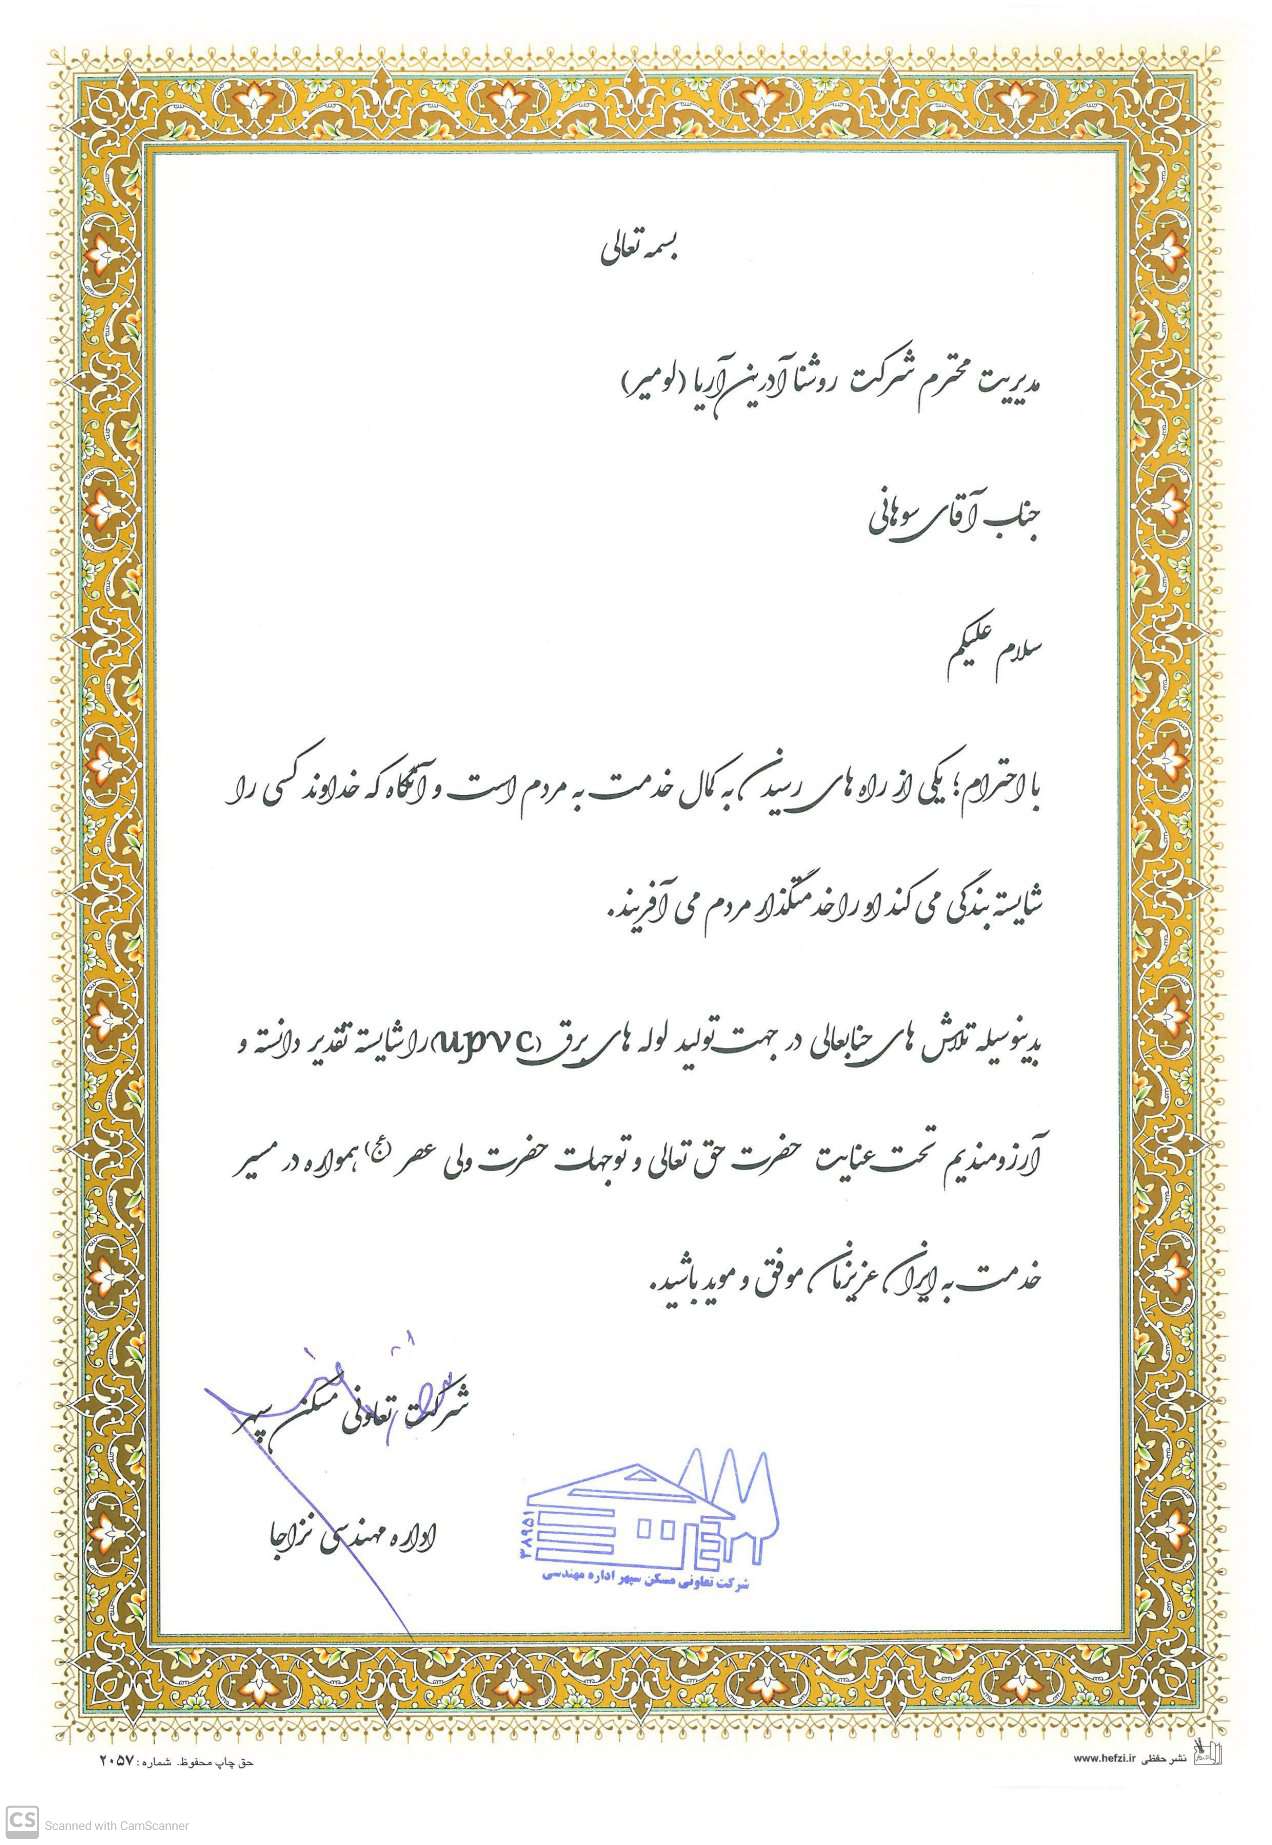 بسمه تعالی
مدیریت محترم شرکت روشنا آدرین آریا (لومیر)
جناب آقای سوهانی
سلام علیکم
با احترام؛ یکی از راه های رسیدن به کمال خدمت به مردم است و آنگاه که خداوند کسی را
شایسته بندگی می کند او را خدمتگذار مردم می آفریند.
بدینوسیله تلاش های جنابعالی در جهت تولید لوله های برق (upvc) را شایسته تقدیر دانسته و
آرزومندیم تحت عنایت حضرت حق تعالی و توجهات حضرت ولی عصر (عج) همواره در مسیر
خدمت به ایران عزیزمان موفق و موید باشید.
شرکت تعاونی مسکن سپهر
اداره مهندسی نزاجا
۳۸۹۵۱
شرکت تعاونی مسکن سپهر اداره مهندسی
نشر حفظی www.hefzi.ir
حق چاپ محفوظ. شماره: ۲۰۵۷
CS Scanned with CamScanner